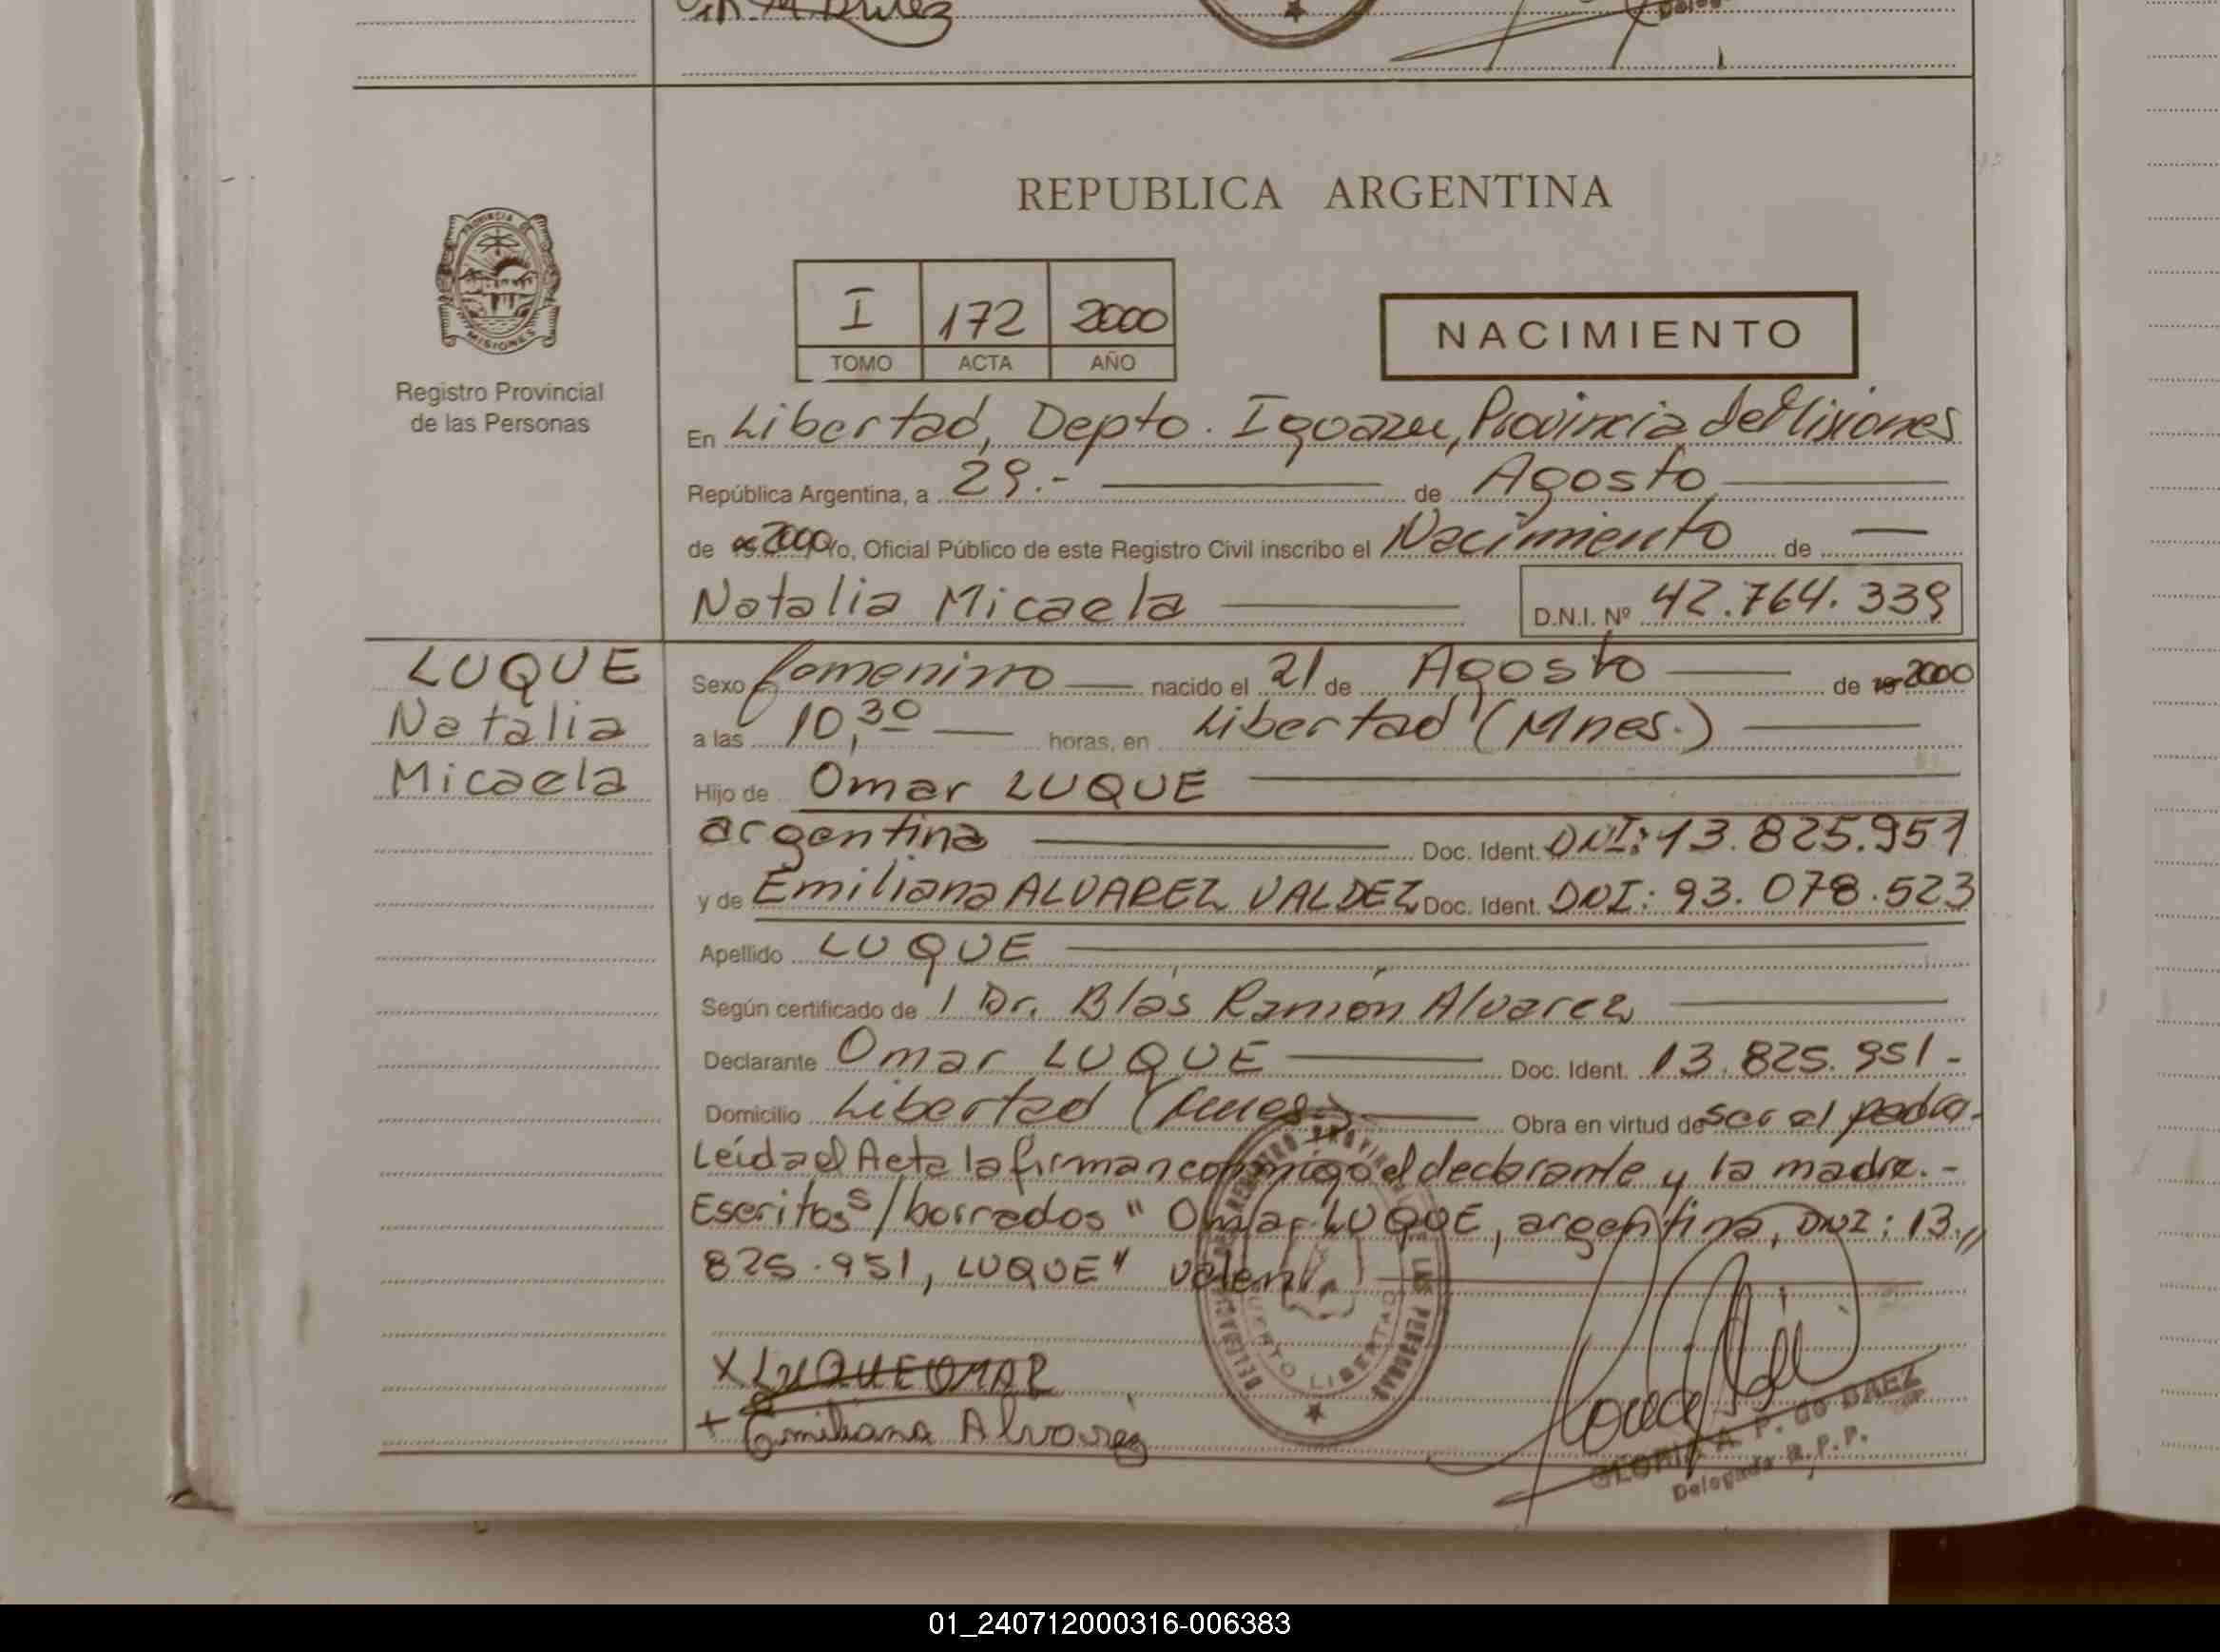 REPUBLICA ARGENTINA
I 172 2000
TOMO ACTA AÑO
NACIMIENTO
Registro Provincial
de las Personas
PROVINCIA DE
MISIONES
En Libertad, Depto. Iguazu, Provincia de Misiones
República Argentina, a 29.- de Agosto
de 2000 Yo, Oficial Público de este Registro Civil inscribo el Nacimiento de
Natalia Micaela D.N.I. Nº 42.764.339
LUQUE
Natalia
Micaela
Sexo femenino nacido el 21 de Agosto de 19 2000
a las 10,30 horas, en Libertad (Mnes.)
Hijo de Omar LUQUE
argentina Doc. Ident. DNI: 13.825.951
y de Emiliana ALVAREZ VALDEZ Doc. Ident. DNI: 93.078.523
Apellido LUQUE
Según certificado de 1 Dr. Blás Ramón Alvarez
Declarante Omar LUQUE Doc. Ident. 13.825.951-
Domicilio Libertad (Mnes.) Obra en virtud de ser el padre.
Leída el Acta la firman conmigo el declarante y la madre.-
Escritos s/borrados "Omar LUQUE, argentina, DNI: 13.//
825.951, LUQUE" valen.
X LUQUE OMAR
+ Emiliana Alvarez
DELEGACION REGISTRO PROVINCIAL DE LAS PERSONAS
PUERTO LIBERTAD
GLORIA A. P. de BAEZ
Delegada R.P.P.
01_240712000316-006383